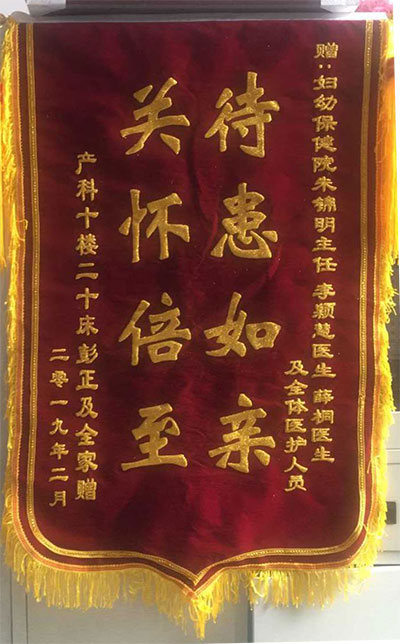 赠:妇幼保健院朱锦明主任 李颖慧医生 薛桐医生
及全体医护人员
待患如亲
关怀倍至
产科十楼二十床彭正及全家赠
二零一九年二月